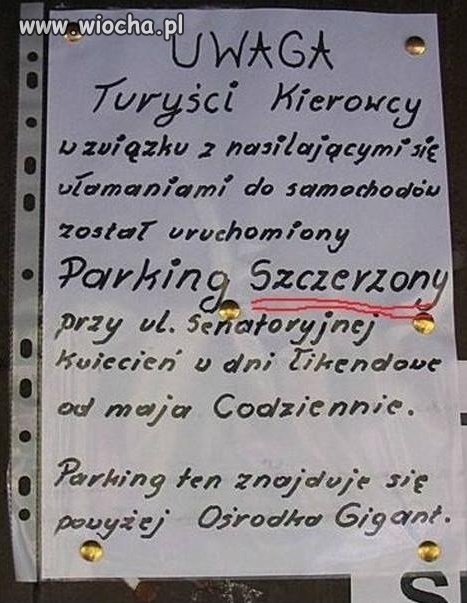 www.wiocha.pl
UWAGA
Turyści Kierowcy
w związku z nasilającymi się
włamaniami do samochodów
został uruchomiony
Parking Szczerzony
przy ul. Senatoryjnej
Kwiecień w dni Łikendowe
od maja Codziennie.
Parking ten znajduje się
powyżej Ośrodka Gigant.
S